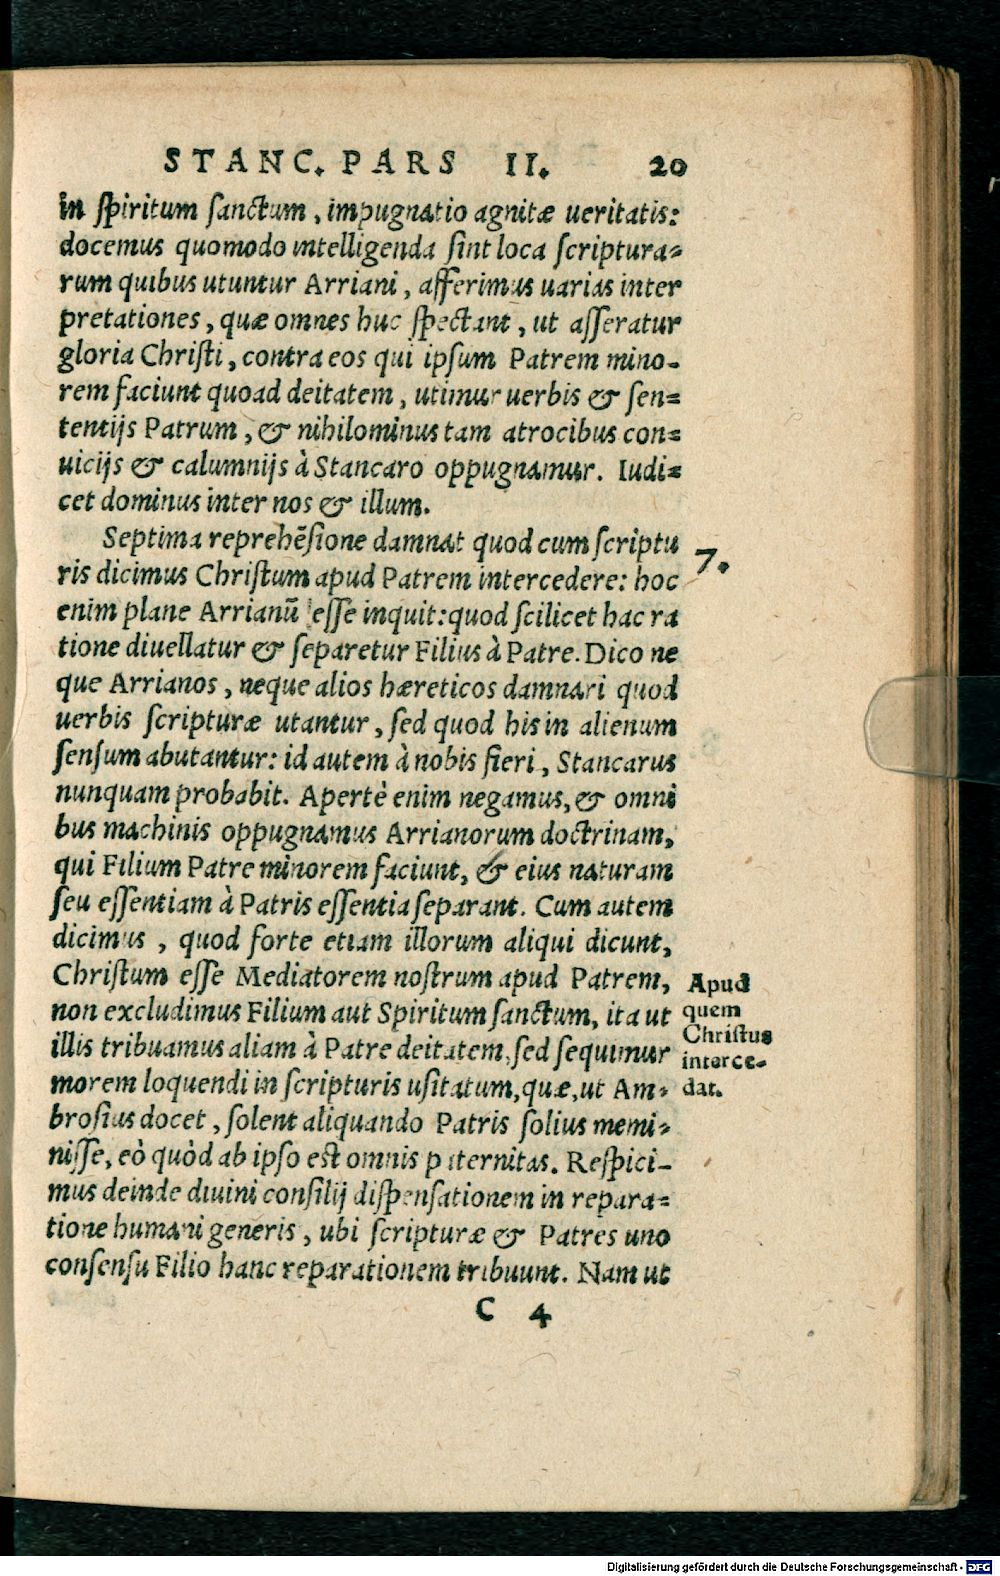 STANC. PARS II. 20
in spiritum sanctum, impugnatio agnitæ ueritatis:
docemus quomodo intelligenda sint loca scriptura-
rum quibus utuntur Arriani, afferimus uarias inter
pretationes, quæ omnes huc spectant, ut asseratur
gloria Christi, contra eos qui ipsum Patrem mino-
rem faciunt quoad deitatem, utimur uerbis & sen-
tentijs Patrum, & nihilominus tam atrocibus con-
uicijs & calumnijs à Stancaro oppugnamur. Iudi-
cet dominus inter nos & illum.
Septima reprehẽsione damnat quod cum scriptu
ris dicimus Christum apud Patrem intercedere: hoc
7.
enim plane Arrianũ esse inquit: quod scilicet hac ra
tione diuellatur & separetur Filius à Patre. Dico ne
que Arrianos, neque alios hæreticos damnari quod
uerbis scripturæ utantur, sed quod his in alienum
sensum abutantur: id autem à nobis fieri, Stancarus
nunquam probabit. Apertè enim negamus, & omni
bus machinis oppugnamus Arrianorum doctrinam,
qui Filium Patre minorem faciunt, & eius naturam
seu essentiam à Patris essentia separant. Cum autem
dicimus, quod forte etiam illorum aliqui dicunt,
Christum esse Mediatorem nostrum apud Patrem,
non excludimus Filium aut Spiritum sanctum, ita ut
illis tribuamus aliam à Patre deitatem, sed sequimur
morem loquendi in scripturis usitatum, quæ, ut Am-
brosius docet, solent aliquando Patris solius memi-
nisse, eò quòd ab ipso est omnis paternitas. Respici-
mus deinde diuini consilij dispensationem in repara-
tione humani generis, ubi scripturæ & Patres uno
consensu Filio hanc reparationem tribuunt. Nam ut
Apud
quem
Christus
interce-
dat.
C 4
Digitalisierung gefördert durch die Deutsche Forschungsgemeinschaft - DFG